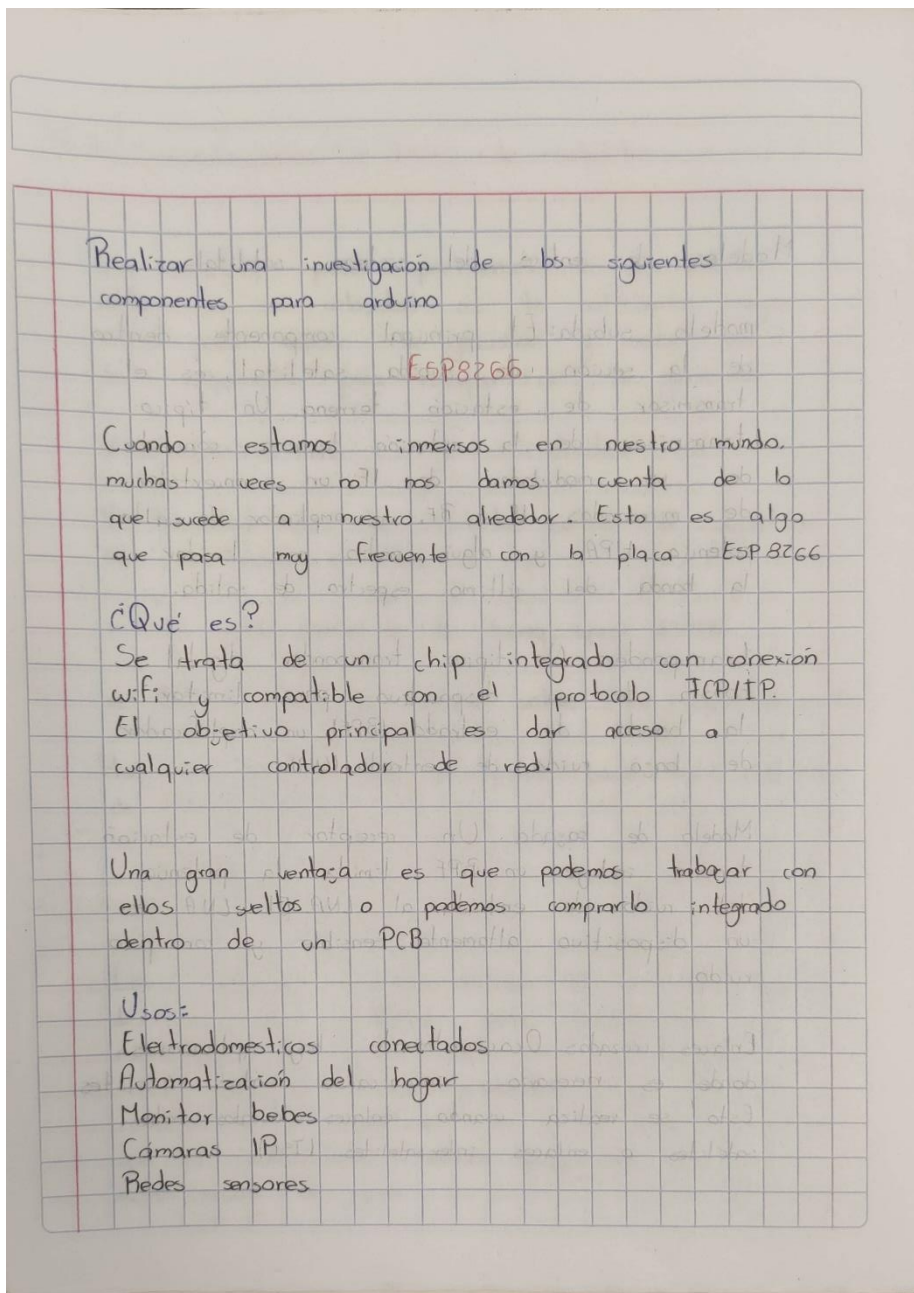 Realizar una investigación de los siguientes
componentes para arduino
ESP8266
Cuando estamos inmersos en nuestro mundo.
muchas veces no nos damos cuenta de lo
que sucede a nuestro alrededor. Esto es algo
que pasa muy frecuente con la placa ESP8266
¿Qué es?
Se trata de un chip integrado con conexión
wifi y compatible con el protocolo TCP/IP.
El objetivo principal es dar acceso a
cualquier controlador de red.
Una gran ventaja es que podemos trabajar con
ellos sueltos o podemos comprarlo integrado
dentro de un PCB
Usos:
Electrodomesticos conectados
Automatización del hogar
Monitor bebes
Cámaras IP
Redes sensores